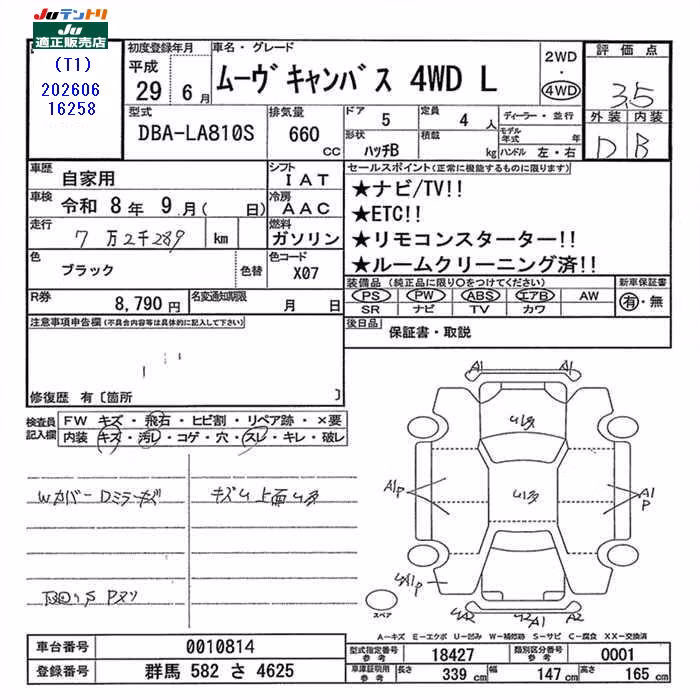 Juテントリ
Ju
適正販売店
(T1)
202606
16258
初度登録年月
平成
29年 6月
車名・グレード
ムーヴキャンバス 4WD L
2WD
・
4WD
評価点
3.5
外装 内装
D B
型式
DBA-LA810S
排気量
660
CC
ドア 5
定員 4人
形状
ハッチB
積載
kg
ディーラー・並行
モデル年式 年
ハンドル 左・右
車歴
自家用
シフト
IAT
車検
令和 8年 9月( 日)
冷房
AAC
走行
7万2千289 km
燃料
ガソリン
色
ブラック
色替
色コード
X07
R券
8,790円
名変通知期限
月 日
セールスポイント(正常に機能するものに限ります)
★ナビ/TV!!
★ETC!!
★リモコンスターター!!
★ルームクリーニング済!!
装備品(純正品に限り○をつけてください)
PS PW ABS エアB AW
SR ナビ TV カワ
新車保証書
有・無
後日品
保証書・取説
注意事項申告欄(不具合内容等は具体的に記入して下さい)
修復歴 有〔箇所 〕
検査員
記入欄
FW キズ・飛石・ヒビ割・リペア跡・×要
内装・キズ・汚レ・コゲ・穴・スレ・キレ・破レ
Wカバー Dミラーキズ
キズU上面U多
A1 A1
U多
A1P
U多
A1P
A2
スペア
A-キズ E-エクボ U-凹み W-補修跡 S-サビ C-腐食 XX-交換済
車台番号
0010814
登録番号
群馬 582 さ 4625
型式指定番号
参考
18427
類別区分番号
参考
0001
車庫証明用
参考
長さ 339cm
幅 147cm
高さ 165cm